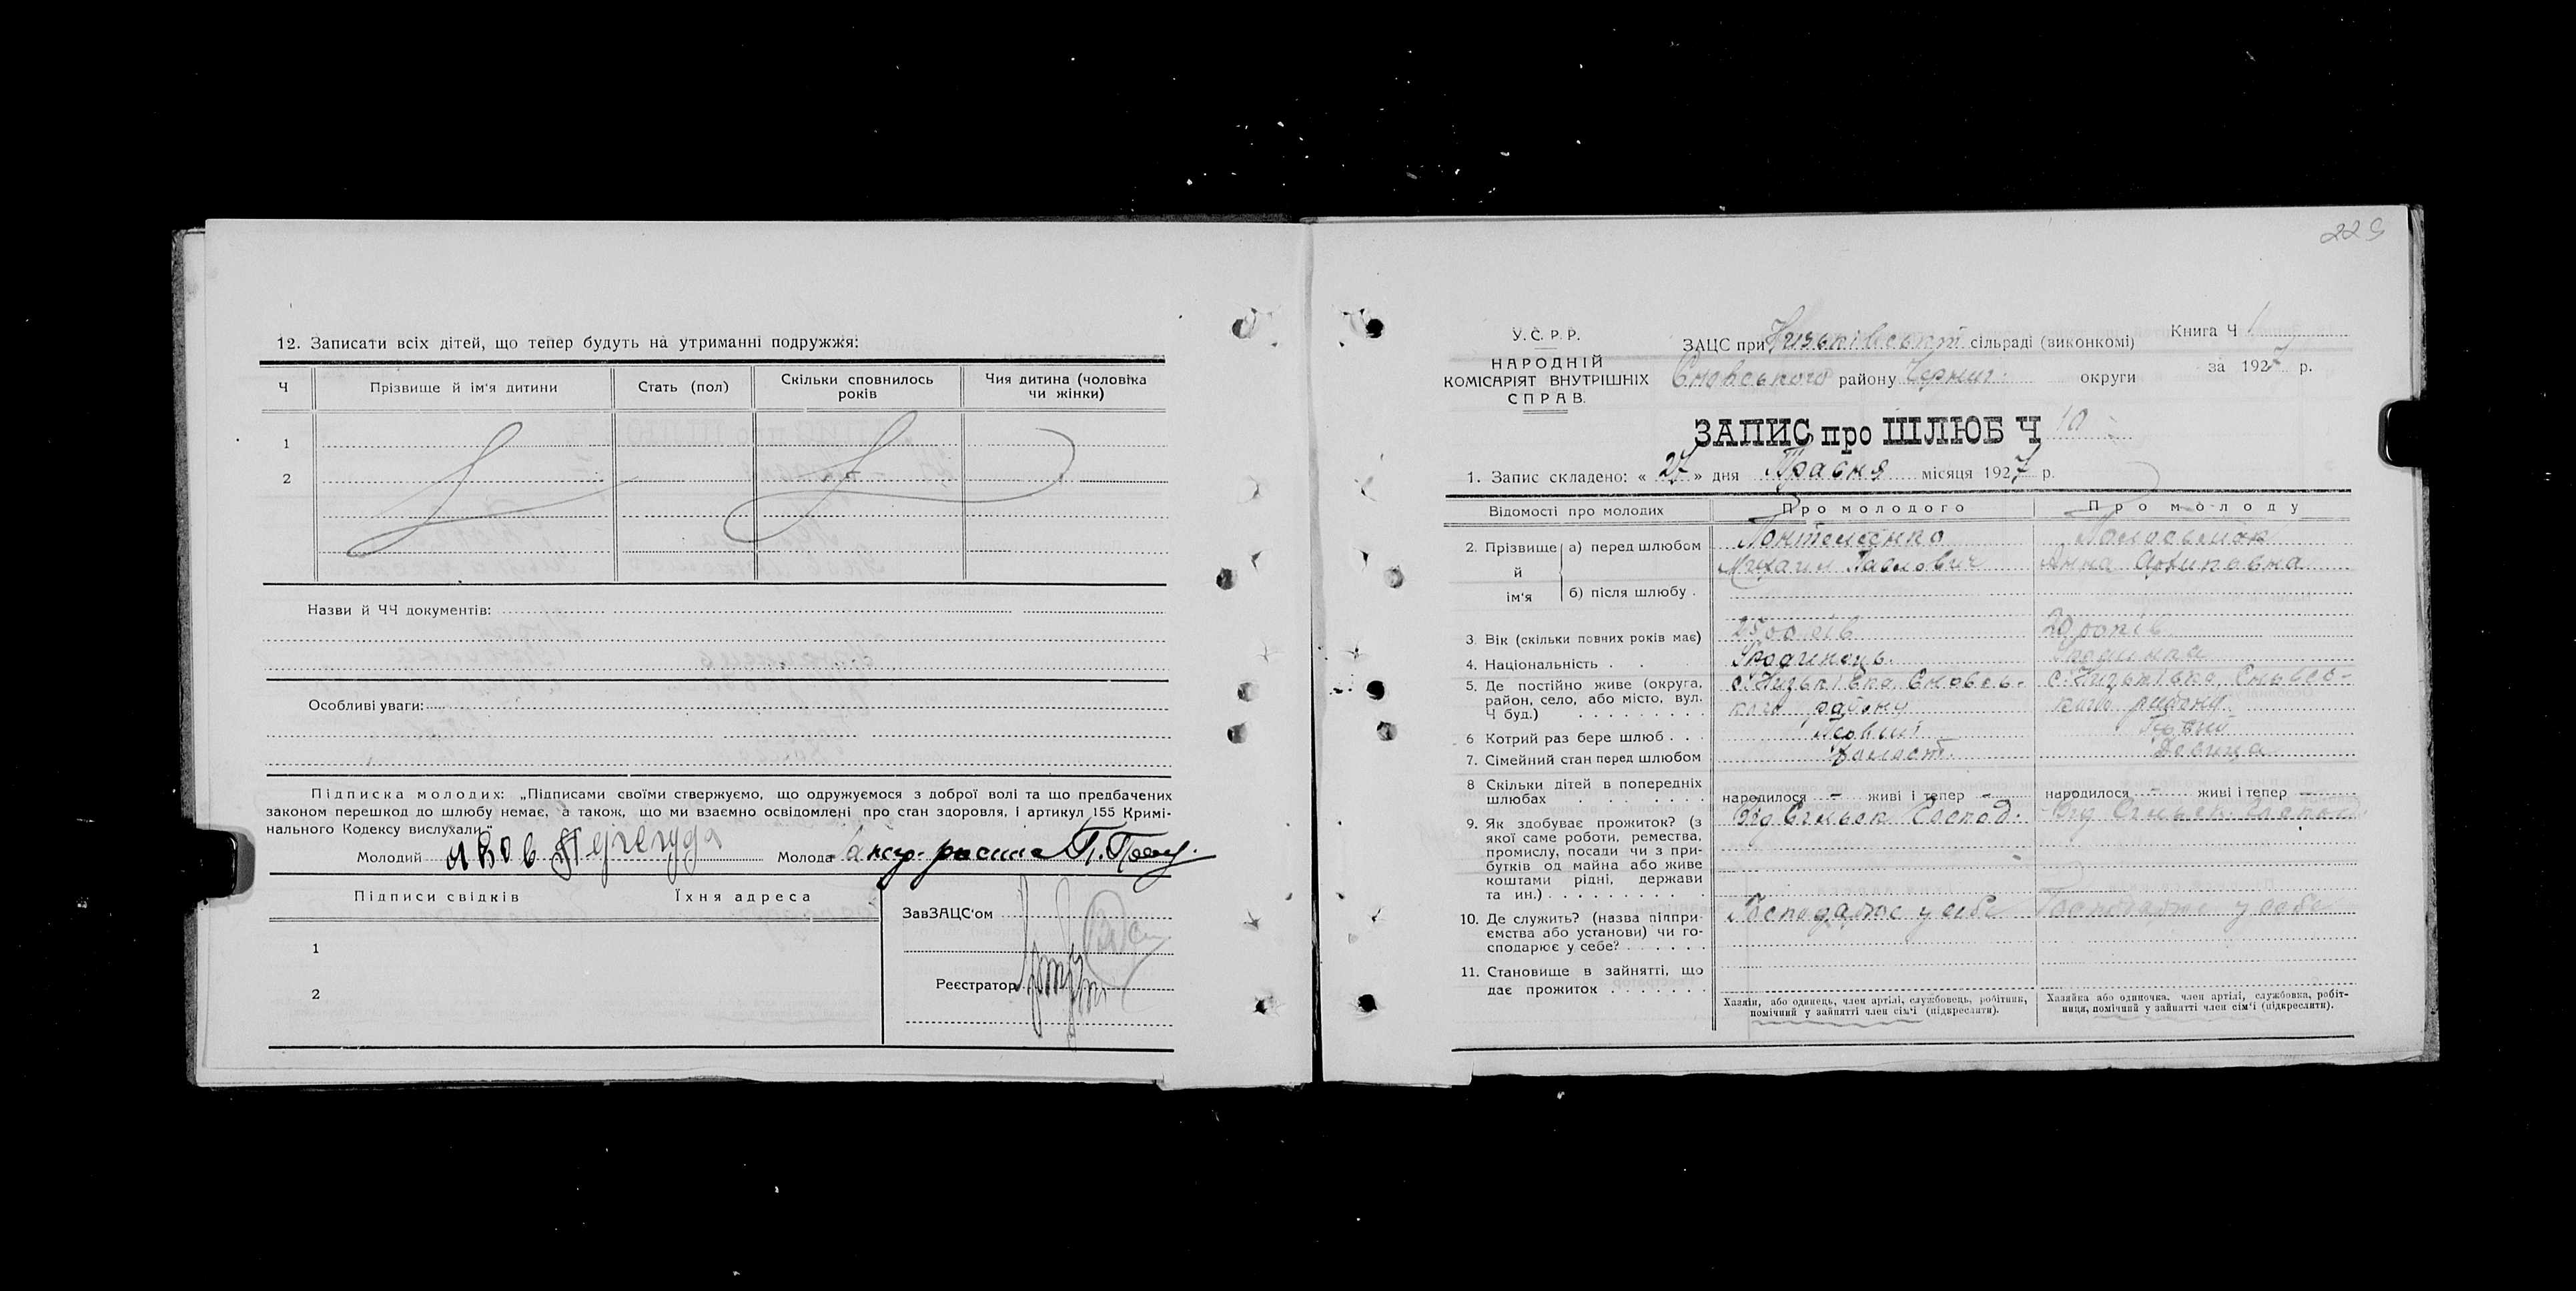 12. Записати всіх дітей, що тепер будуть на утриманні подружжя:
Ч
Прізвище й ім'я дитини
Стать (пол)
Скільки сповнилось років
Чия дитина (чоловіка чи жінки)
1
2
Назви й ЧЧ документів:
Особливі уваги:
Підписка молодих: „Підписами своїми стверджуємо, що одружуємося з доброї волі та що предбачених
законом перешкод до шлюбу немає, а також, що ми взаємно освідомлені про стан здоровля, і артикул 155 Кримі-
нального Кодексу вислухали."
Молодий
Молода
Підписи свідків
Їхня адреса
ЗавЗАЦС'ом
1
Реєстратор
2
229
У.С.Р.Р.
НАРОДНІЙ
КОМІСАРІЯТ ВНУТРІШНІХ
СПРАВ.
ЗАЦС при Низьківській сільраді (виконкомі)
Книга Ч 1
Сновського району Черниг. округи
за 1927 р.
ЗАПИС про ШЛЮБ Ч 10
1. Запис складено: « 27 » дня Травня місяця 1927 р.
Відомості про молодих
Про молодого
Про молоду
2. Прізвище й ім'я
а) перед шлюбом
Михаил Павлович
Анна Архиповна
б) після шлюбу
3. Вік (скільки повних років має)
25 років
20 років
4. Національність
5. Де постійно живе (округа,
район, село, або місто, вул.
Ч буд.)
с. Низьківка Сновсь-
кого району
с. Низьківка Сновсь-
кого району
6 Котрий раз бере шлюб
7. Сімейний стан перед шлюбом
Холост.
Девица
8 Скільки дітей в попередніх
шлюбах
народилося - живі і тепер -
народилося - живі і тепер -
9. Як здобуває прожиток? (з
якої саме роботи, ремества,
промислу, посади чи з при-
бутків од майна або живе
коштами рідні, держави
та ин.)
Від Сільск. Господ.
Від Сільск. Господ
10. Де служить? (назва підпри-
ємства або установи) чи го-
сподарює у себе?
Господарює у себе
Господарює у себе
11. Становище в зайнятті, що
дає прожиток
Хазяїн, або одинець, член артілі, службовець, робітник,
помічний у зайнятті член сім'ї (підкреслити).
Хазяйка або одиночка, член артілі, службовка, робіт-
ниця, помічний у зайнятті член сім'ї (підкреслити).